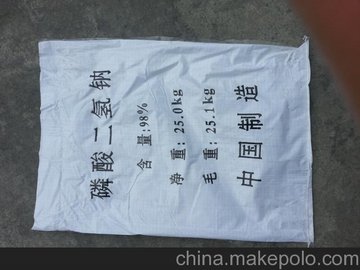 磷酸二氢钠
含量:98%
净重:25.0kg
毛重:25.1kg
中国制造
china.makepolo.com